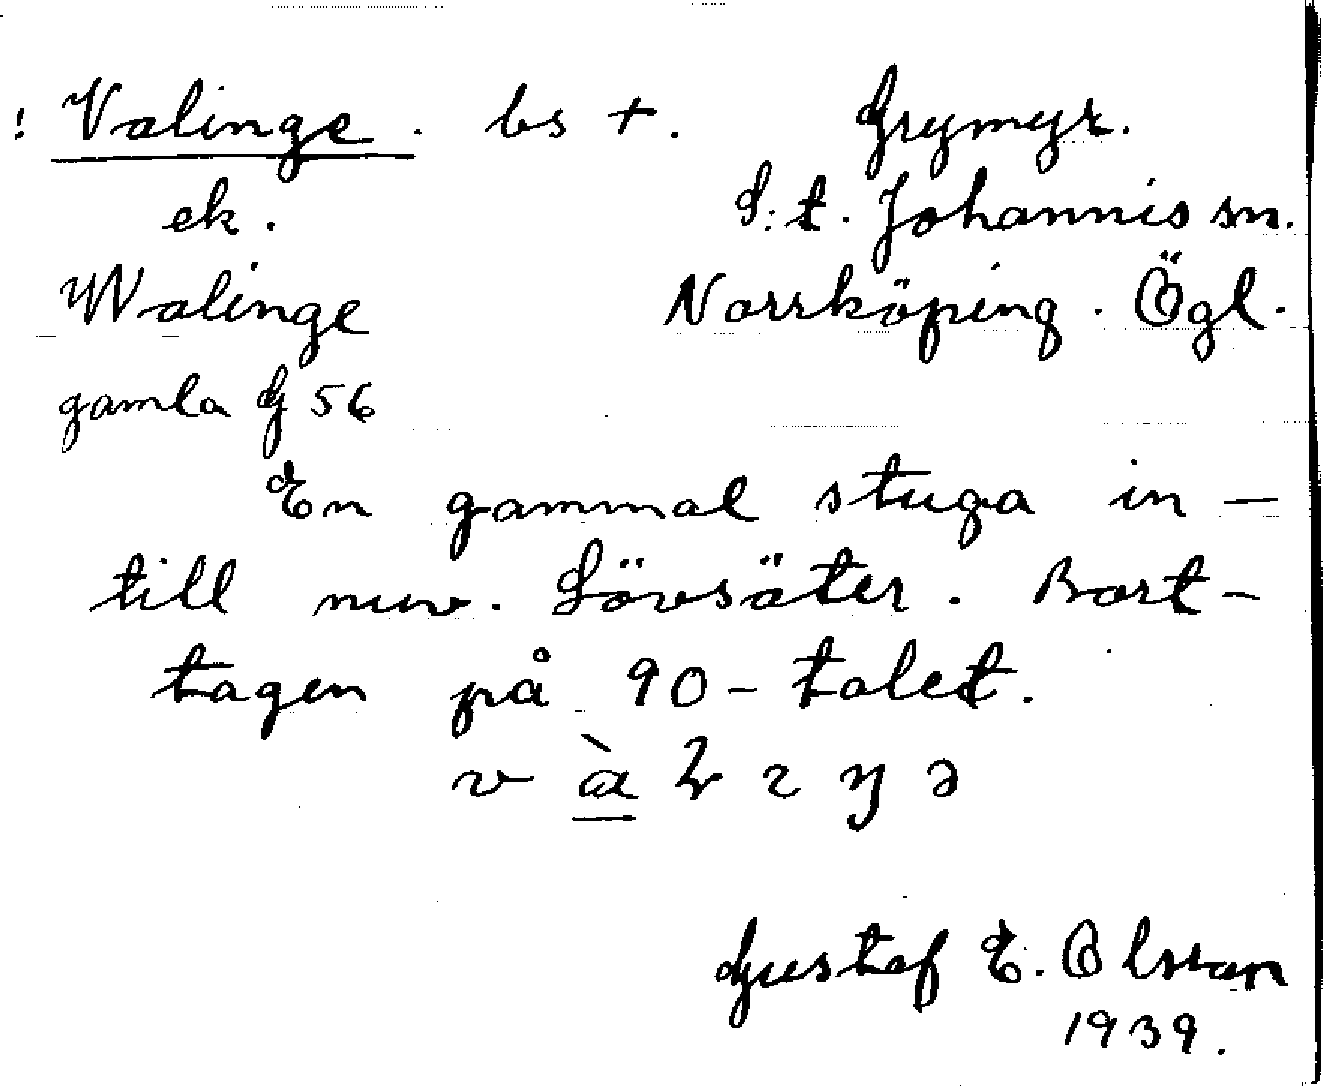 ! Valinge. bs +. Grymyr.
ek. S:t. Johannis sn.
Walinge Norrköping. Ögl.
gamla G 56
En gammal stuga in-
till nuv. Lövsäter. Bort-
tagen på 90-talet.
v
Gustaf E. Olsson
1939.